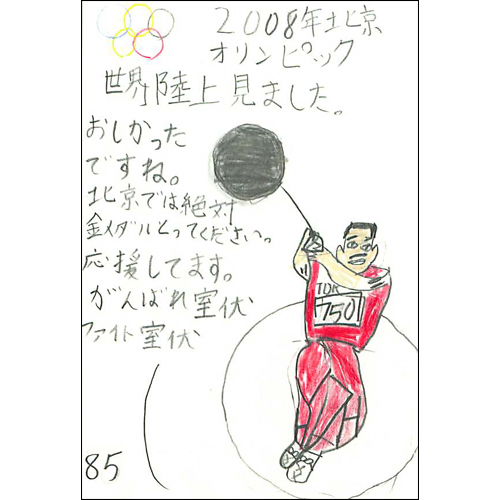 2008年北京
オリンピック
世界陸上見ました。
おしかった
ですね。
北京では絶対
金メダルとってください。
応援してます。
がんばれ室伏
ファイト室伏
TDK
750
85